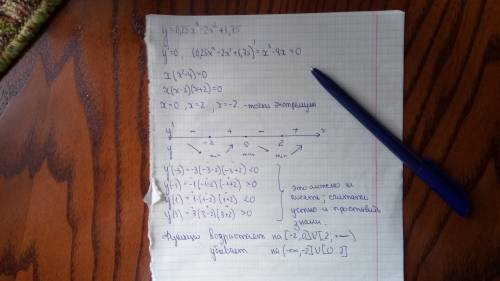 y=0,25x⁴-2x²+1,75
y'=0, (0,25x⁴-2x²+1,75)'=x³-4x=0
x(x²-4)=0
x(x-2)(x+2)=0
x=0, x=2, x=-2 -точки экстремума
y' - + - + x
y -2 0 2
min max min
y'(-3)=-3(-3-2)(-3+2)<0
y'(-1)=-1(-1-2)(-1+2)>0
y'(1)=1(1-2)(1+2)<0
y'(3)=3(3-2)(3+2)>0
это можно не
писать, считать
устно и проставить
знаки.
Функция возрастает на [-2,0]V[2,+∞)
убывает на (-∞,-2]V[0,2]